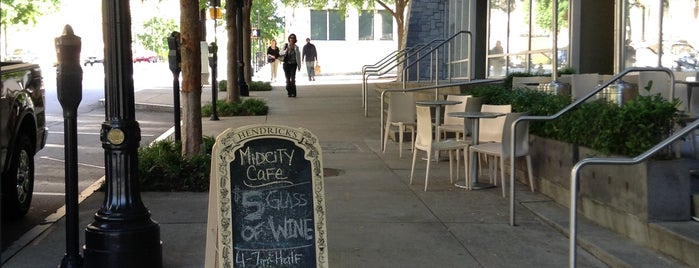 HENDRICK'S
MIDCITY
CAFE
5 GLASS
OF WINE
4-7PM HALF